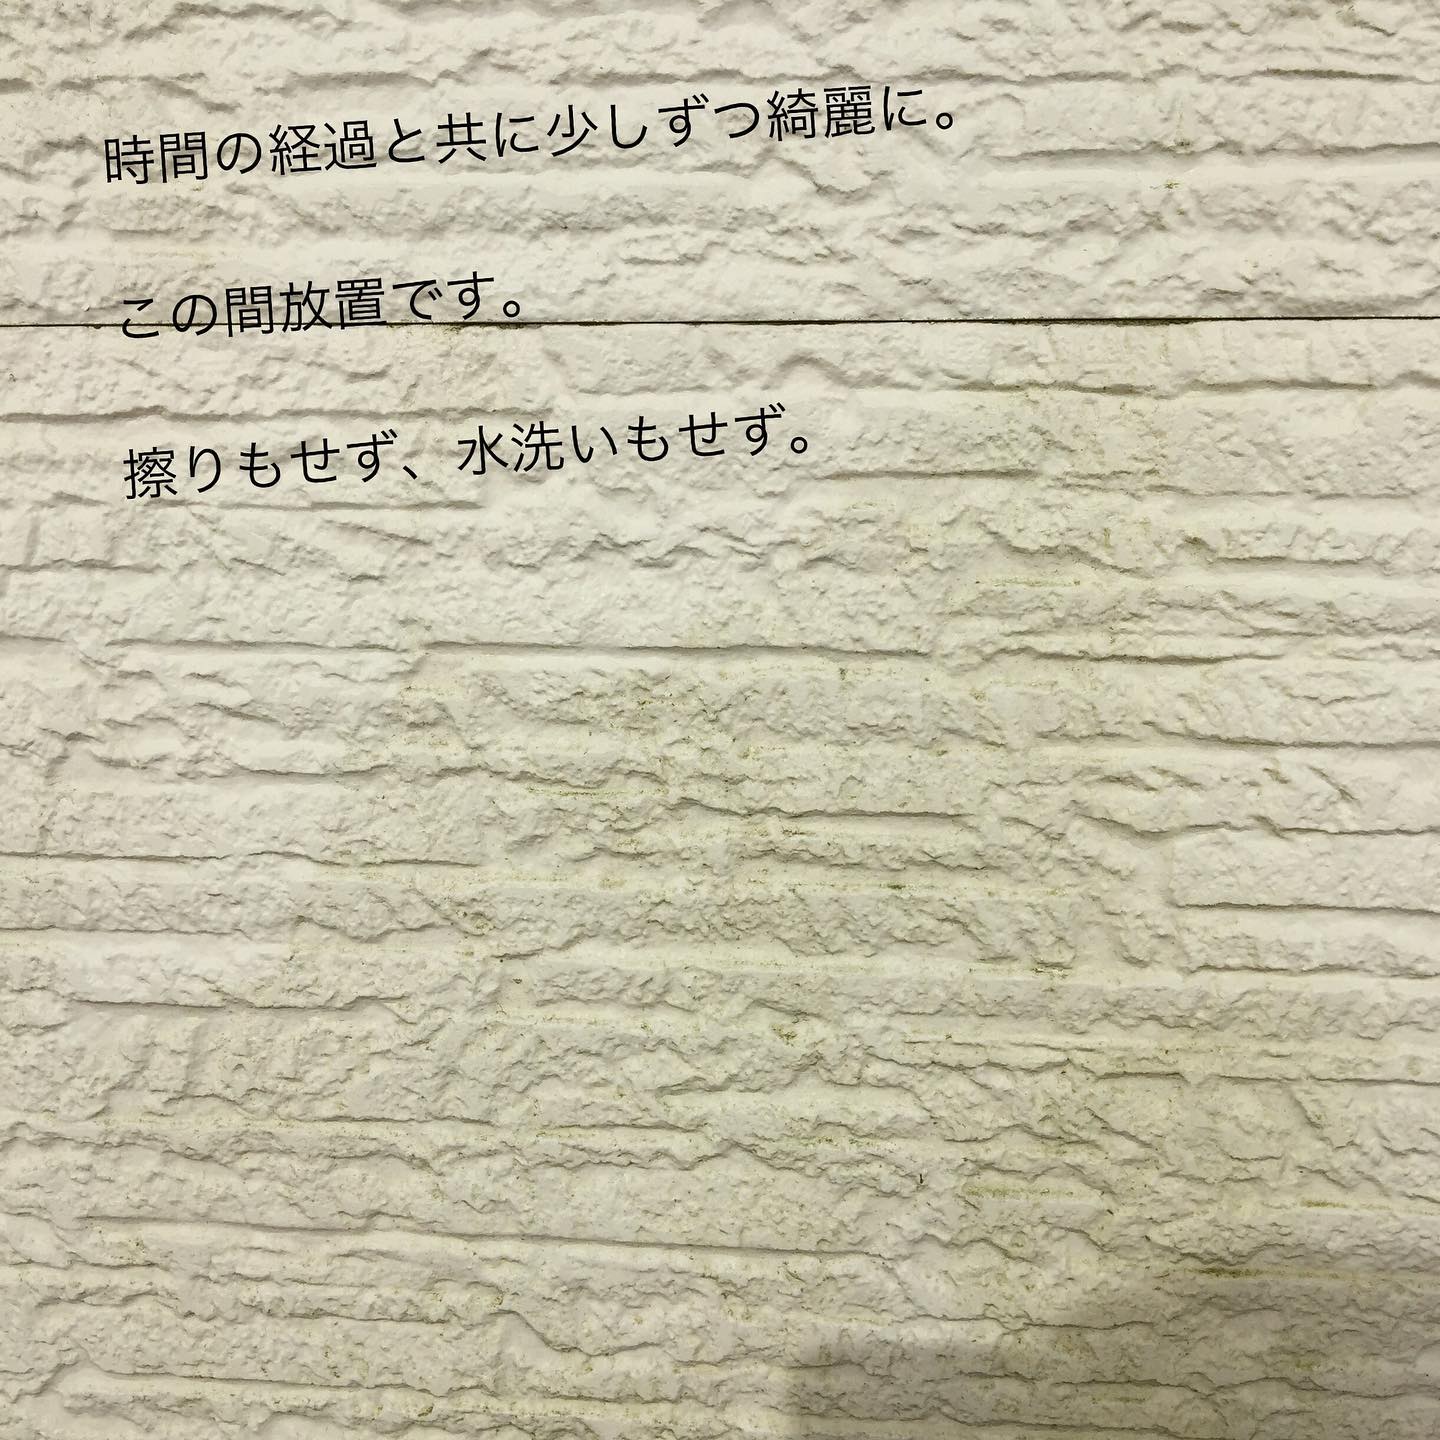 時間の経過と共に少しずつ綺麗に。
この間放置です。
擦りもせず、水洗いもせず。